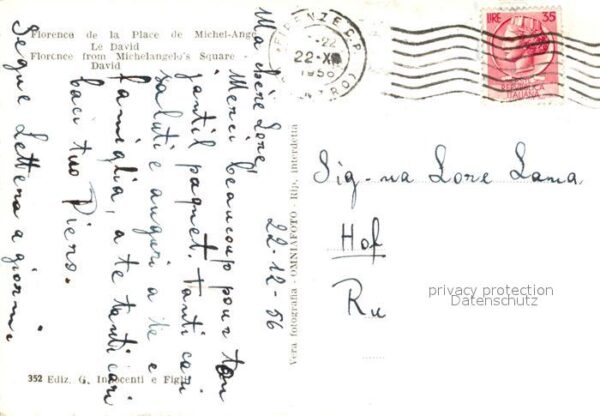 Florence de la Place de Michel-Ange
Le David
Florence from Michelangelo's Square
David
FIRENZE C.P.
22-XII
1956
LIRE 35
REPUBBLICA
ITALIANA
22-12-56
Ma chère Lore,
Merci beaucoup pour ton
jantil paquet. Tanti cari
saluti e auguri a te e
famiglia, a te tanti cari
baci tuo Piero.
Segue Lettera a giorni
Sig-na Lore Lama
Hof
Ru
privacy protection
Datenschutz
Vera fotografia - OMNIAFOTO - Rip. interdetta
352 Ediz. G. Innocenti e Figli